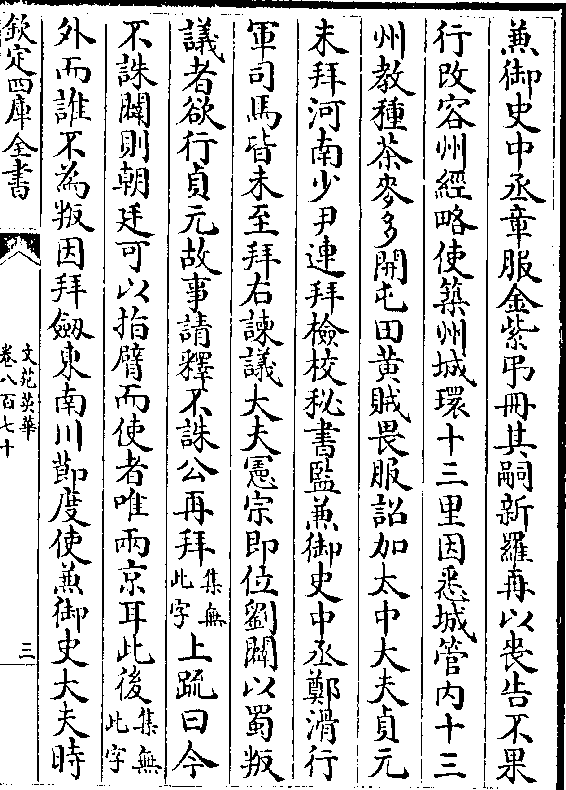 兼御史中丞章服金紫弔冊其嗣新羅再以喪告不果
行改容州經略使築州城環十三里因悉城管内十三
州教種茶麥多開屯田黄賊畏服詔加太中大夫貞元
末拜河南少尹連拜檢校秘書監兼御史中丞鄭滑行
軍司馬皆未至拜右諫議大夫憲宗即位劉闢以蜀叛
議者欲行貞元故事請釋不誅公再拜集無此字上䟽曰今
不誅闢則朝廷可以指臂而使者唯兩京耳此後集無此字
外而誰不為叛因拜劒東南川節度使兼御史大夫時
欽定四庫全書
文苑英華
卷八百七十
三